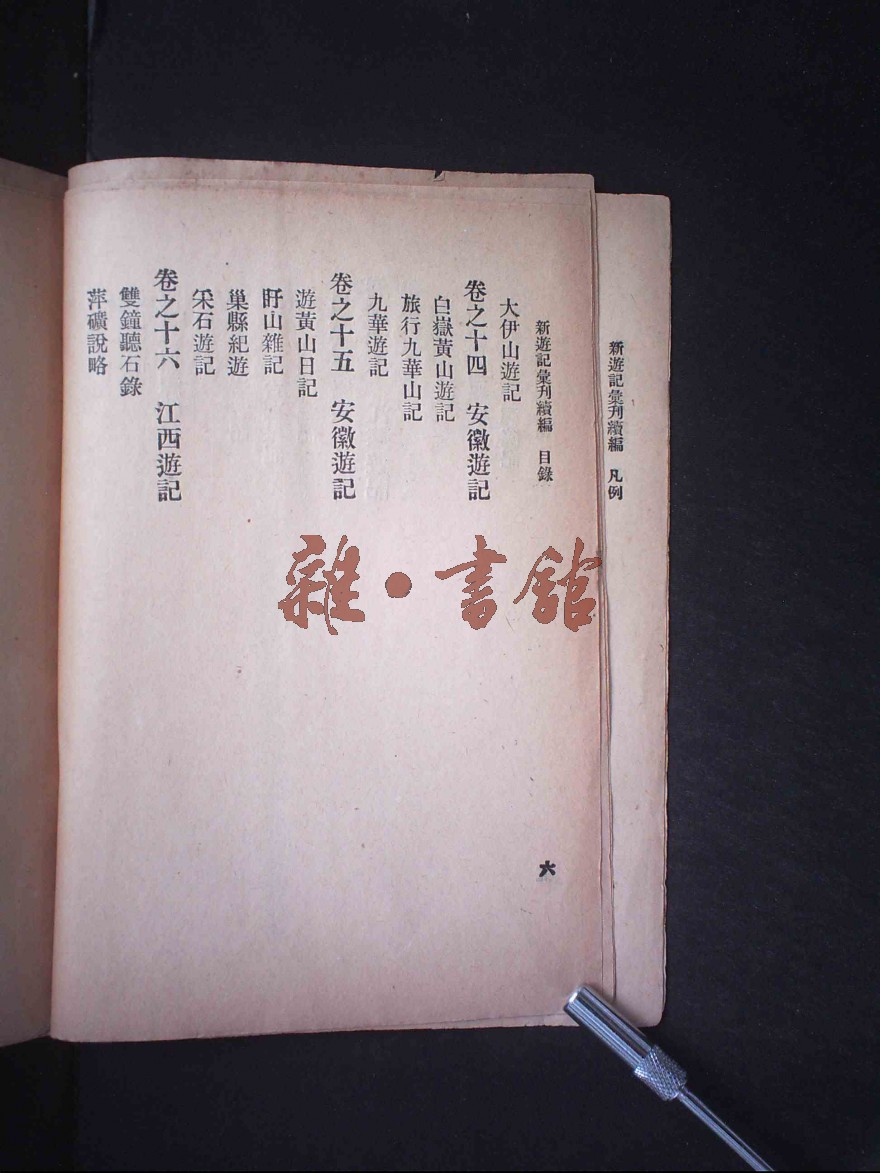 新遊記彙刋續編　凡例
新遊記彙刋續編　目錄
大伊山遊記
卷之十四　安徽遊記
白嶽黃山遊記
旅行九華山記
九華遊記
卷之十五　安徽遊記
遊黃山日記
盱山雜記
巢縣紀遊
采石遊記
卷之十六　江西遊記
雙鐘聽石錄
萍礦說略
六
雜·書舘